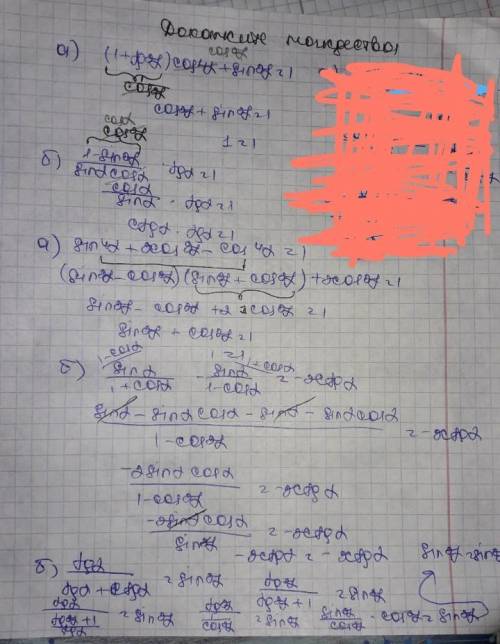 Докажите тождества
а) (1+tg²α)cos⁴α + sin²α = 1
1
cos²α
cos²α
cos²α + sin²α = 1
1 = 1
cos²α
б) 1-sin²α / sinα cosα · tgα = 1
cosα / sinα · tgα = 1
ctgα · tgα = 1
а) sin⁴α + 2cos²α - cos⁴α = 1
(sin²α - cos²α)(sin²α + cos²α) + 2cos²α = 1
sin²α - cos²α + 2cos²α = 1
sin²α + cos²α = 1
1 = 1
1-cosα 1+cosα
б) sinα / 1+cosα - sinα / 1-cosα = -2ctgα
sinα - sinα cosα - sinα - sinα cosα / 1-cos²α = -2ctgα
-2sinα cosα / 1-cos²α = -2ctgα
-2sinα cosα / sin²α = -2ctgα
-2ctgα = -2ctgα
б) tgα / tgα + ctgα = sin²α tg²α / tg²α + 1 = sin²α sin²α = sin²α
tgα / tg²α + 1 / tgα = sin²α tg²α / 1 / cos²α = sin²α sin²α / cos²α · cos²α = sin²α